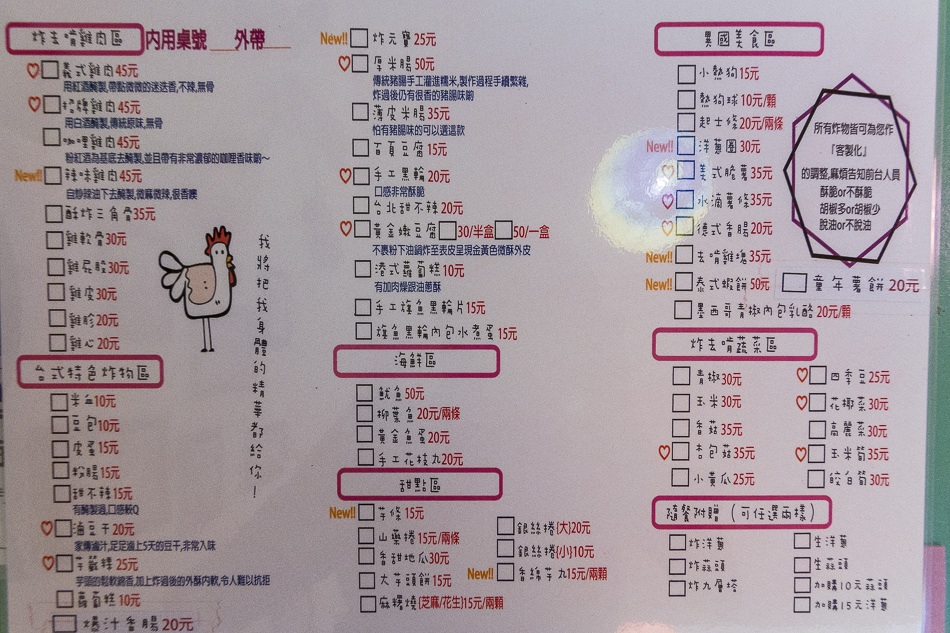 炸去啃雞肉區 內用桌號 外帶
義式雞肉45元
用紅酒醃製,帶點微微的迷迭香,不辣,無骨
招牌雞肉45元
用白酒醃製,傳統原味,無骨
咖哩雞肉45元
粉紅酒為基底去醃製,並且帶有非常濃郁的咖哩香味喲~
New!! 辣味雞肉45元
自炒辣油下去醃製,微麻微辣,很香噢
酥炸三角骨35元
雞軟骨30元
雞屁股30元
雞皮30元
雞胗20元
雞心20元
我將把我身體的精華都給你!
台式特色炸物區
米血10元
豆包10元
皮蛋15元
粉腸15元
甜不辣15元
有醃製過,口感較Q
滷豆干20元
家傳滷汁,足足滷上5天的豆干,非常入味
芋籤粿25元
芋頭的鬆軟綿香,加上炸過後的外酥內軟,令人難以抗拒
蘿蔔糕10元
爆汁香腸20元
New!! 炸元寶25元
厚米腸50元
傳統豬腸手工灌進糯米,製作過程手續繁雜,
炸過後仍有很香的豬腸味喲
薄皮米腸35元
怕有豬腸味的可以選這款
百頁豆腐15元
手工黑輪20元
口感非常酥脆
台北甜不辣20元
黃金嫩豆腐 30/半盒 50/一盒
不裹粉下油鍋炸至表皮呈現金黃色微酥外皮
港式蘿蔔糕10元
有加肉燥跟油蔥酥
手工旗魚黑輪片15元
旗魚黑輪內包水煮蛋15元
海鮮區
魷魚50元
柳葉魚20元/兩條
黃金魚蛋20元
手工花枝丸20元
甜點區
New!! 芋條15元
山藥捲15元/兩條
香甜地瓜30元
大芋頭餅15元
麻糬燒(芝麻/花生)15元/兩顆
銀絲捲(大)20元
銀絲捲(小)10元
New!! 香綿芋丸15元/兩顆
異國美食區
小熱狗15元
熱狗球10元/顆
起士條20元/兩條
New!! 洋蔥圈30元
美式脆薯35元
水滴薯條35元
德式香腸20元
New!! 去啃雞塊35元
New!! 泰式蝦餅50元
童年薯餅20元
墨西哥青椒內包乳酪20元/顆
所有炸物皆可為您作
「客製化」
的調整,麻煩告知前台人員
酥脆or不酥脆
胡椒多or胡椒少
脫油or不脫油
炸去啃蔬菜區
青椒30元
玉米30元
香菇35元
杏包菇35元
小黃瓜25元
四季豆25元
花椰菜30元
高麗菜30元
玉米筍35元
筊白筍30元
隨餐附贈(可任選兩樣)
炸洋蔥
炸蒜頭
炸九層塔
生洋蔥
生蒜頭
加購10元蒜頭
加購15元洋蔥